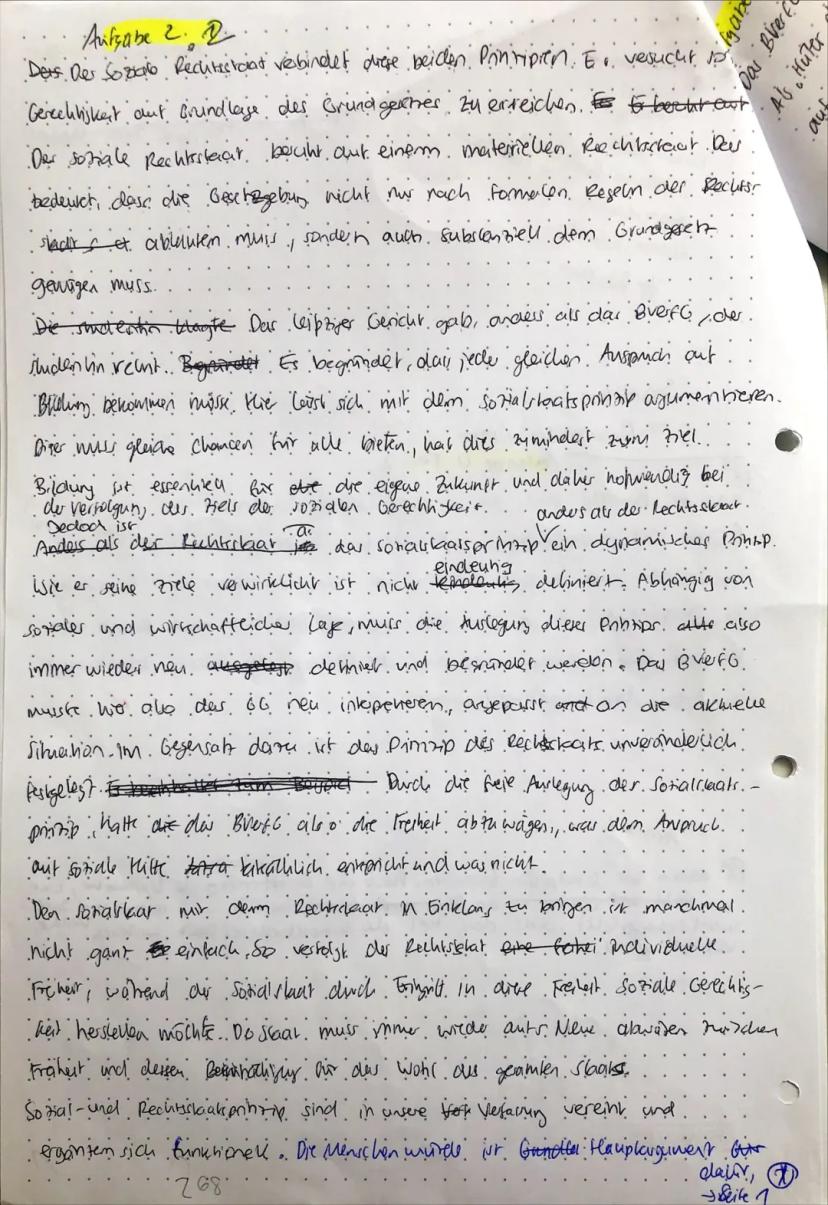 Aufgabe 2.2
Der Soziale Rechtsstaat verbindet diese beiden Prinzipien. Er versucht
Gerechtigkeit auf Grundlage des Grundgesetzes zu erreichen.
Der soziale Rechtsstaat beruht auf einem materiellen Rechtsstaat. Das
bedeutet, dass die Gesetzgebung nicht nur nach formalen Regeln des Rechts-
ablaufen muss, sondern auch substanziell dem Grundgesetz
genügen muss.
Die Studentin klagte Das Leipziger Gericht gab, anders als das BVerfG, der
Studentin recht. Begründet Es begründet, dass jeder gleichen Anspruch auf
Bildung bekommen müsse. Hier lässt sich mit dem Sozialstaatsprinzip argumentieren.
Dieser muss gleiche Chancen für alle bieten, hat dies zumindest zum Ziel.
Bildung ist essentiell für die eigene Zukunft und daher notwendig bei
der Verfolgung des Ziels der sozialen Gerechtigkeit.
anders als der Rechtsstaat
Jedoch ist
Anders als der Rechtsstaat das Sozialstaatsprinzip ein dynamisches Prinzip.
eindeutig
Wie er seine Ziele verwirklicht ist nicht definiert. Abhängig von
sozialer und wirtschaftlicher Lage, muss die Auslegung dieses Prinzips also
immer wieder neu ausgelegt definiert und begründet werden. Das BVerfG
musste also das GG neu interpretieren, angepasst an die aktuelle
Situation. Im Gegensatz dazu ist das Prinzip des Rechtsstaats unveränderlich
festgelegt. Durch die freie Auslegung des Sozialstaats-
prinzip, hatte das BVerfG also die Freiheit abzuwägen, was dem Anspruch
auf soziale Hilfe tatsächlich entspricht und was nicht.
Den Sozialstaat mit dem Rechtsstaat in Einklang zu bringen ist manchmal
nicht ganz einfach. So verfolgt der Rechtsstaat individuelle
Freiheit, während der Sozialstaat durch Eingriff in diese Freiheit soziale Gerechtig-
keit herstellen möchte. Der Staat muss immer wieder aufs Neue abwägen zwischen
Freiheit und deren für das Wohl des gesamten Staats.
Sozial- und Rechtsstaatsprinzip sind in unsere Verfassung vereint und
ergänzen sich funktionell. Die Menschenwürde ist Hauptargument
dafür,
→ Seite 1
268
Das BVerfG
Als "Hüter